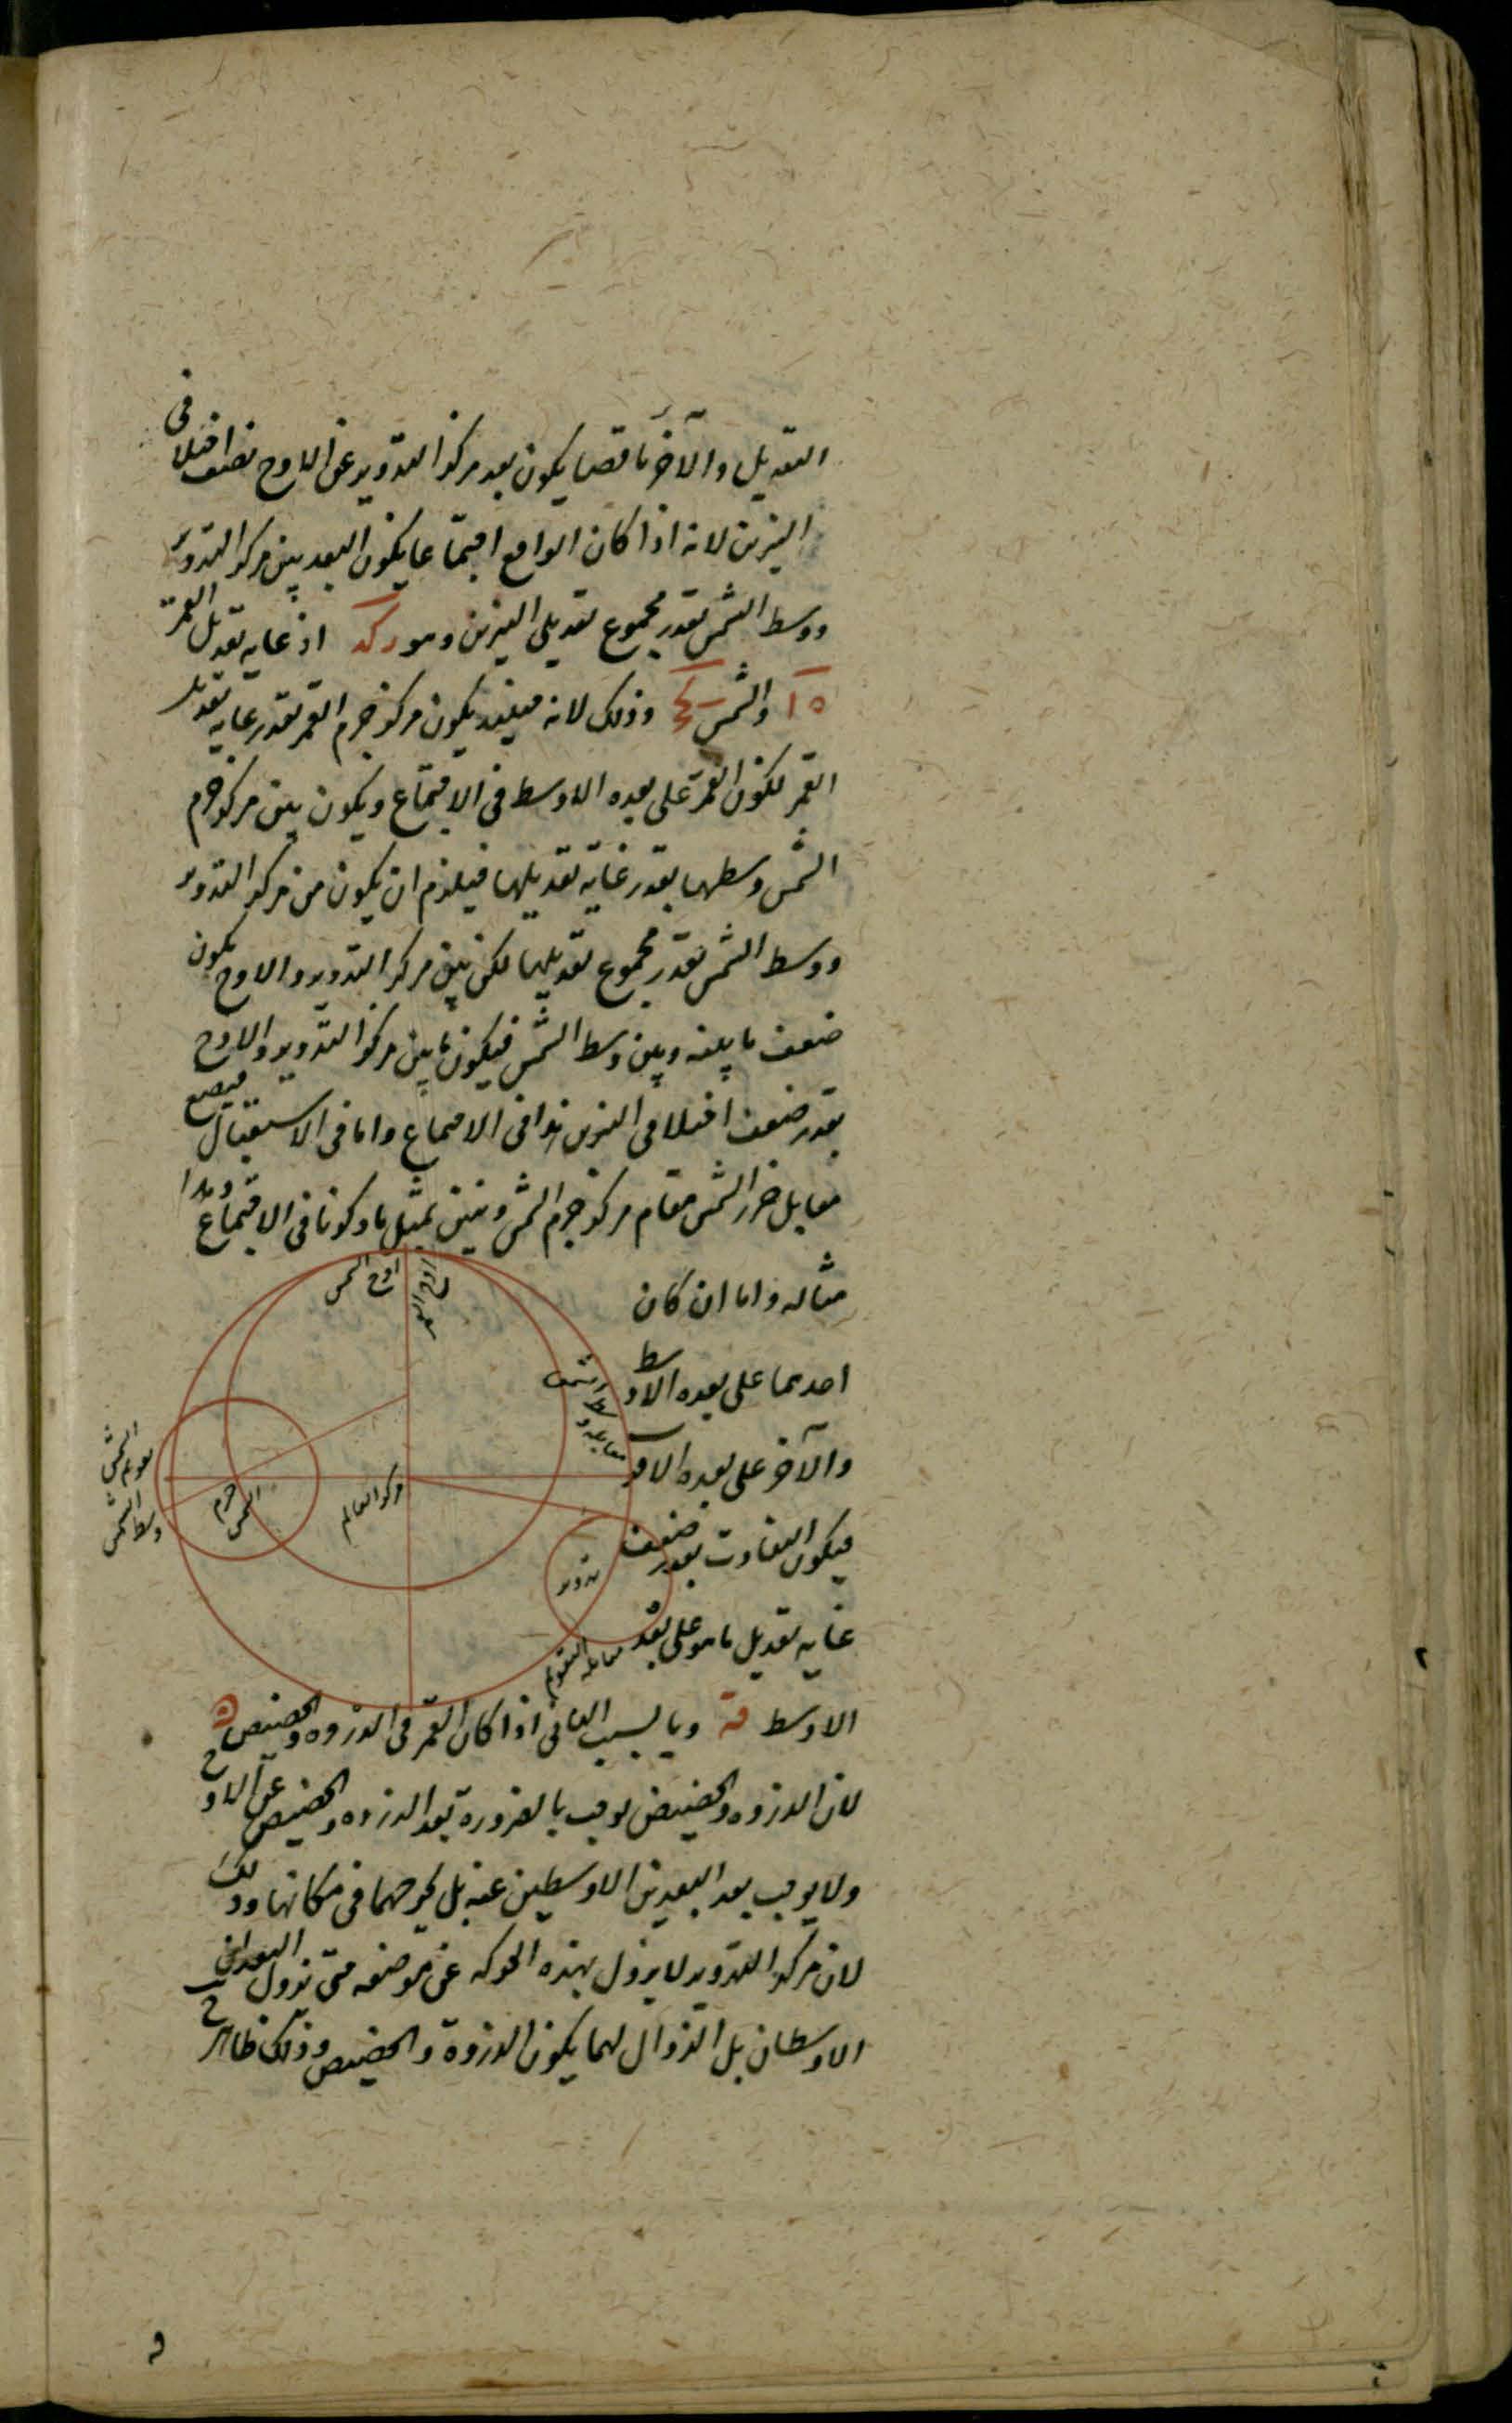 التعديل والآخر ناقصا يكون بعد مركز التدوير عن الاوج نصف اختلافى
النيرين لانه اذا كان الواقع اجتماعا يكون البعد بين مركز التدوير
ووسط الشمس بقدر مجموع تعديلى النيرين وهو ركد اذ غايه تعديل القمر
ه ا والشمس وذلك لانه حينئذ يكون مركز جرم القمر بقدر غايه تعديل
القمر لكون القمر على بعده الاوسط فى الاجتماع ويكون بين مركز جرم
الشمس وسطها بقدر غاية تعديلها فيلزم ان يكون من مركز التدوير
ووسط الشمس بقدر مجموع تعديلهما لكن بين مركز التدوير والاوج يكون
ضعف ما بينه وبين وسط الشمس فيكون ما بين مركز التدوير والاوج
بقدر ضعف اختلافى النيرين هذا فى الاجتماع واما فى الاستقبال فيضع
مقابل جزء الشمس مقام مركز جرم الشمس ونبين بمثل ما ذكرنا فى الاجتماع وهذا
مثاله واما ان كان
احدهما على بعده الاوسط
والآخر على بعده الاقرب
فيكون التفاوت بقدر ضعف
غايه تعديل ما هو على بعد
الاوسط وبالسبب الثانى اذا كان القمر فى الذروه والحضيض
لان الذروه والحضيض يوجب بالضرورة بعد الذروه والحضيض عن الاوج
ولا يوجب بعد البعدين الاوسطين عنه بل كونهما فى مكانها وذلك
لان مركز التدوير لا يزول بهذه الحركه عن موضعه حتى يزول البعدان
الاوسطان بل الزوال لهما يكون الذروة والحضيض وذلك ظاهر
اوج الشمس
مركز العالم
جرم الشمس
تقويم الشمس
وسط الشمس
تدوير
مقابله التقويم